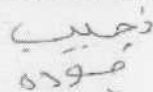 نجيب
فوده